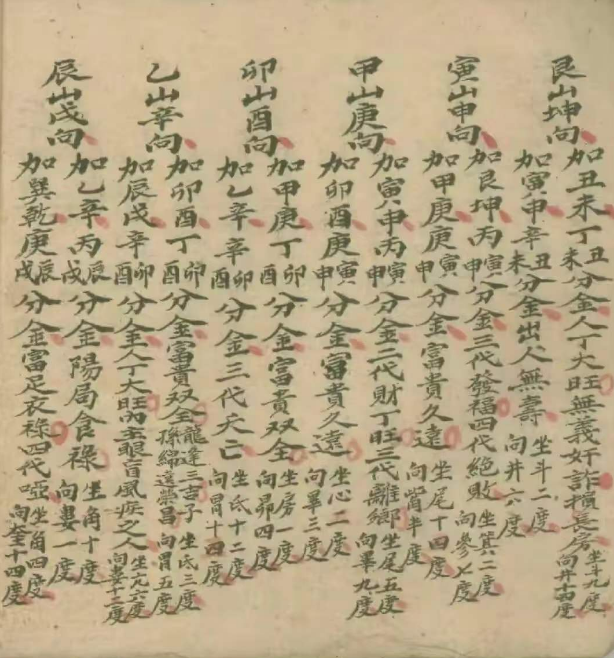 艮山坤向
加丑未丁丑未分金人丁大旺無義奸詐損長房坐斗九度向井十四度
加寅申辛丑未分金出人無壽坐斗二度向井六度
寅山申向
加艮坤丙寅申分金三代發福四代絕敗坐箕六二度向參七度
加甲庚庚寅申分金富貴久遠坐尾十四度向觜半度
甲山庚向
加寅申丙寅申分金二代財丁旺三代離鄉坐尾五度向畢九度
加卯酉庚寅申分金富貴久遠坐心二度向畢三度
卯山酉向
加甲庚丁卯酉分金富貴双全坐房一度向昴四度
加乙辛辛卯酉分金三代夭亡坐氐十二度向胃十四度
乙山辛向
加卯酉丁卯酉分金富貴双全龍逢三吉子孫綿遠榮昌坐氐三度向胃五度
加辰戌辛卯酉分金人丁大旺內主眼盲風疾之人坐亢六度向婁十二度
辰山戌向
加乙辛丙辰戌分金陽局食祿坐角十度向婁一度
加巽乾庚辰戌分金富足衣祿四代啞坐角四度向奎十四度